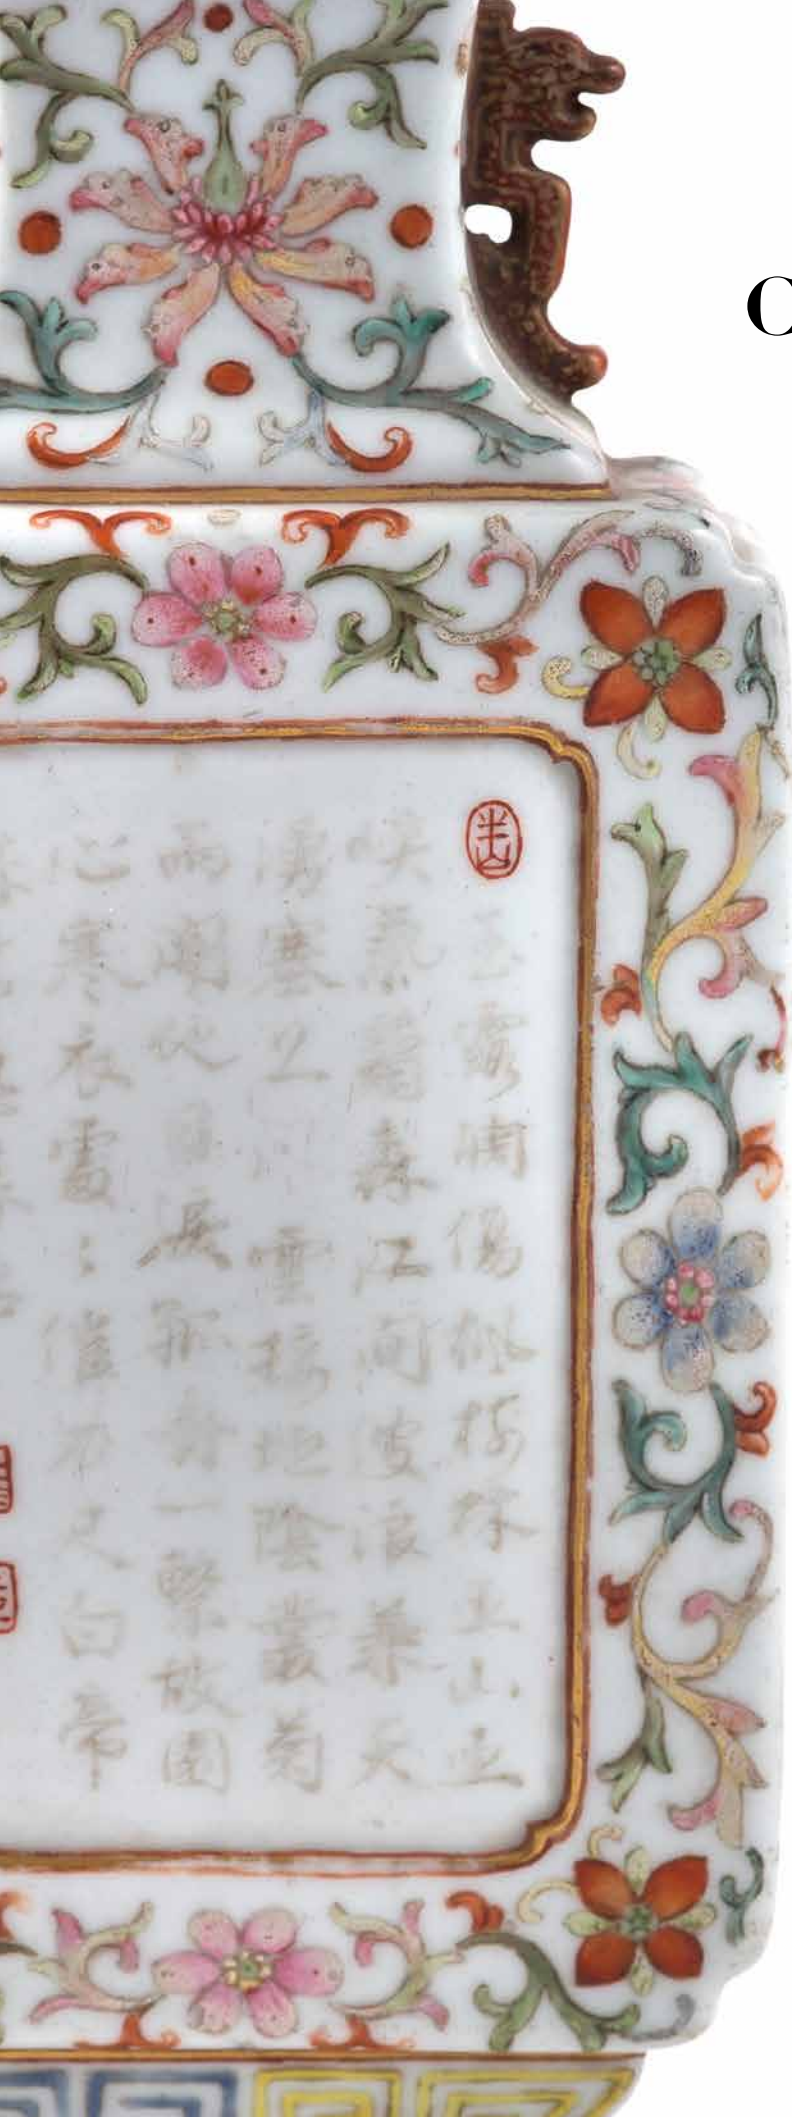 玉露凋傷楓樹林巫山巫
峽氣蕭森江間波浪兼天
湧塞上風雲接地陰叢菊
兩開他日淚孤舟一繫故園
心寒衣處〻催刀尺白帝